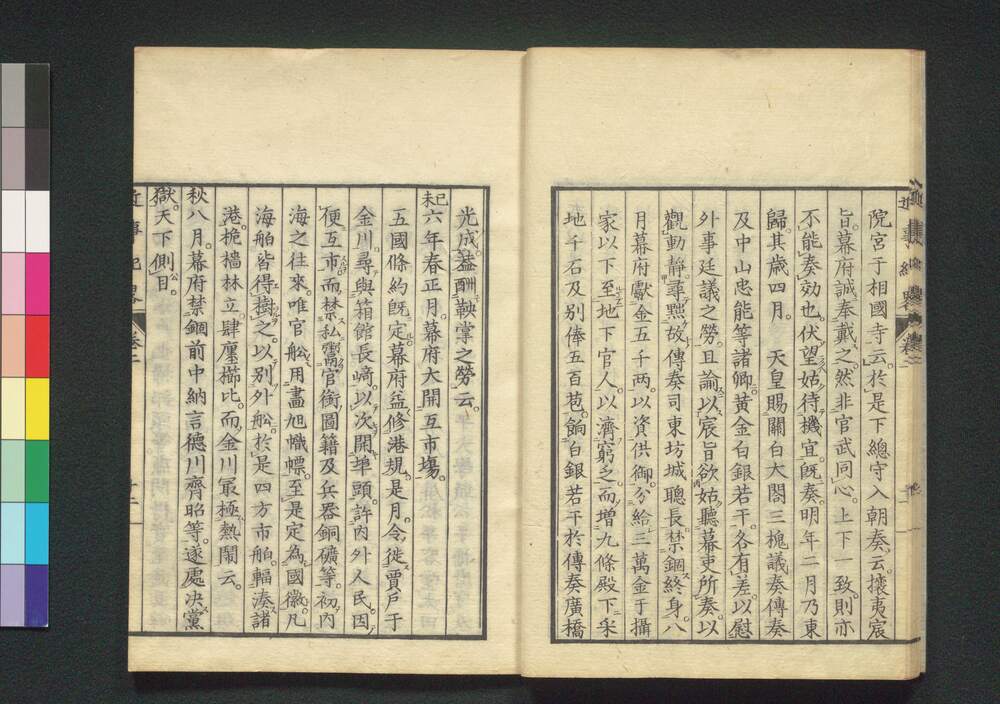 院宮于相國寺云於是下總守入朝奏云攘夷宸
旨幕府誠奉戴之然非官武同心上下一致則亦
不能奏效也伏望姑待機宜既奏明年二月乃東
歸其歲四月　天皇賜關白大閤三槐議奏傳奏
及中山忠能等諸卿黃金白銀若干各有差以慰
外事廷議之勞且諭以宸旨欲姑聽幕吏所奏以
觀動靜尋黜故傳奏司東坊城聰長禁錮終身八
月幕府獻金五千两以資供御分給三萬金于攝
家以下至地下官人以濟窮乏而增九條殿下采
地千石及别俸五百苞餉白銀若干於傳奏廣橋
光成益酬鞅掌之勞云
己未六年春正月幕府大開互市塲
五國條約既定幕府益修港規是月令徙賈戶于
金川尋與箱館長﨑以次開埠頭許内外人民因
便互市而禁私鬻官衡圖籍及兵器銅礦等初内
海之往來唯官舩用畫旭幟幖至是定為國徽凡
海舶皆得樹之以别外舩於是四方市舶輻湊諸
港桅檣林立肆廛櫛比而金川冣極熱鬧云
秋八月幕府禁錮前中納言德川齊昭等遂處决黨
獄天下側目
近事紀畧